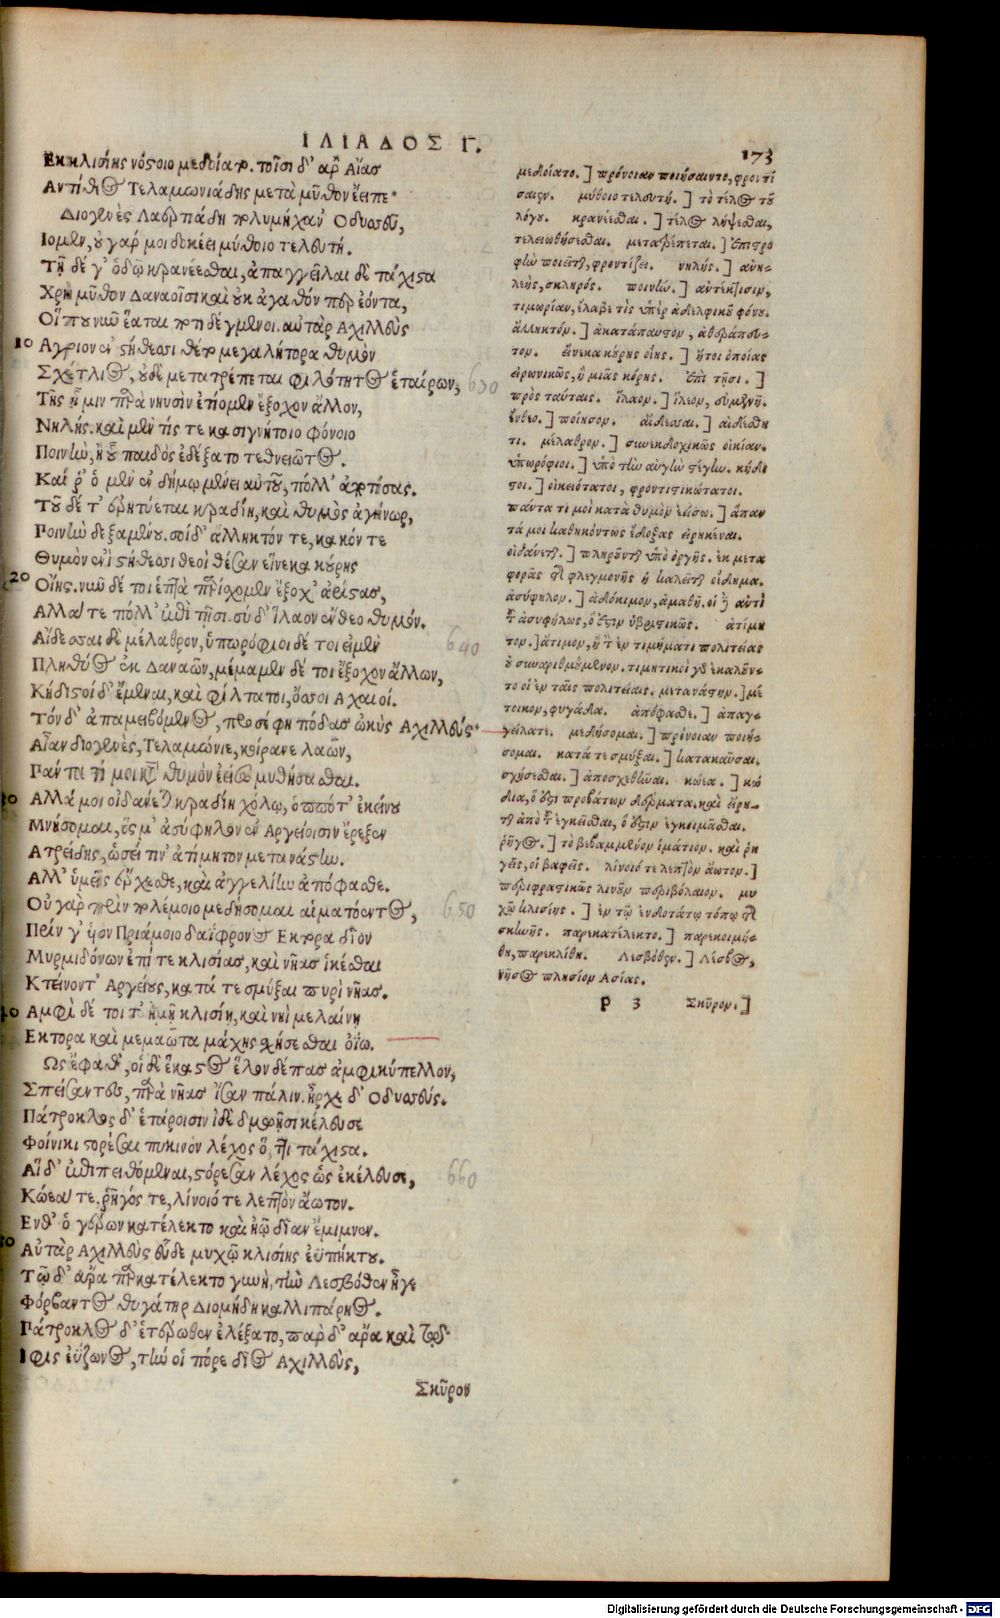 ΙΛΙΑΔΟΣ Ι.
173
Ἐκ κλισίης νόστοιο μεδοίατο. τοῖσι δ' ἄρ' Αἴας
Ἀντίθεος Τελαμωνιάδης μετὰ μῦθον ἔειπε·
Διογενὲς Λαερτιάδη πολυμήχαν' Ὀδυσσεῦ,
Ἴομεν, οὐ γάρ μοι δοκέει μύθοιο τελευτή.
Τῇ δέ γ' ὁδῷ κρανέεσθαι, ἀπαγγεῖλαι δὲ τάχιστα
Χρὴ μῦθον Δαναοῖσι καὶ οὐκ ἀγαθόν περ ἐόντα,
Οἵ που νῦν ἕαται ποτιδέγμενοι. αὐτὰρ Ἀχιλλεὺς
10 Ἄγριον ἐν στήθεσσι θέτο μεγαλήτορα θυμὸν
Σχέτλιος, οὐδὲ μετατρέπεται φιλότητος ἑταίρων, 630
Τῆς ᾗ μιν παρὰ νηυσὶν ἐτίομεν ἔξοχον ἄλλον,
Νηλής. καὶ μέν τίς τε κασιγνήτοιο φόνοιο
Ποινὴν, ἢ οὗ παιδὸς ἐδέξατο τεθνειῶτος.
Καί ῥ' ὁ μὲν ἐν δήμῳ μένει αὐτοῦ, πόλλ' ἀποτίσας.
Τοῦ δέ τ' ἐρητύεται κραδίη, καὶ θυμὸς ἀγήνωρ,
Ποινὴν δεξαμένου. σοὶ δ' ἄλληκτόν τε, κακόν τε
Θυμὸν ἐνὶ στήθεσσι θεοὶ θέσαν εἵνεκα κούρης
20 Οἴης. νῦν δέ τοι ἑπτὰ παρίσχομεν ἔξοχ' ἀρίστας,
Ἄλλα τε πόλλ' ἐπὶ τῇσι. σὺ δ' ἵλαον ἔνθεο θυμόν.
Αἴδεσσαι δὲ μέλαθρον, ὑπωρόφιοι δέ τοι εἰμὲν 640
Πληθύος ἐκ Δαναῶν, μέμαμεν δέ τοι ἔξοχον ἄλλων,
Κήδιστοί δ' ἔμεναι, καὶ φίλτατοι, ὅσσοι Ἀχαιοί.
Τὸν δ' ἀπαμειβόμενος, προσέφη πόδας ὠκὺς Ἀχιλλεύς·
Αἶαν διογενὲς, Τελαμώνιε, κοίρανε λαῶν,
Πάντα τί μοι κατὰ θυμὸν ἐείσω μυθήσασθαι.
30 Ἀλλά μοι οἰδάνεται κραδίη χόλῳ, ὁππότ' ἐκείνου
Μνήσομαι, ὅς μ' ἀσύφηλον ἐν Ἀργείοισιν ἔρεξεν
Ἀτρείδης, ὡσεί τιν' ἀτίμητον μετανάστην.
Ἀλλ' ὑμεῖς ἔρχεσθε, καὶ ἀγγελίην ἀπόφασθε.
Οὐ γὰρ πρὶν πολέμοιο μεδήσομαι αἱματόεντος, 650
Πρίν γ' υἱὸν Πριάμοιο δαΐφρονος Ἕκτορα δῖον
Μυρμιδόνων ἐπί τε κλισίας, καὶ νῆας ἱκέσθαι
Κτείνοντ' Ἀργείους, κατά τε σμύξαι πυρὶ νῆας.
40 Ἀμφὶ δέ τοι τ' ἠμῇ κλισίῃ, καὶ νηῒ μελαίνῃ
Ἕκτορα καὶ μεμαῶτα μάχης σχήσεσθαι ὀΐω.
Ὣς ἔφαθ', οἱ δὲ ἕκαστος ἑλὼν δέπας ἀμφικύπελλον,
Σπείσαντες, παρὰ νῆας ἴσαν πάλιν. ἦρχε δ' Ὀδυσσεύς.
Πάτροκλος δ' ἑτάροισιν ἰδὲ δμωῇσι κέλευσε
Φοίνικι στορέσαι πυκινὸν λέχος ὅ, ττι τάχιστα.
Αἱ δ' ἐπιπειθόμεναι, στόρεσαν λέχος ὡς ἐκέλευσε, 660
Κώεά τε, ῥῆγός τε, λίνοιό τε λεπτὸν ἄωτον.
Ἔνθ' ὁ γέρων κατέλεκτο καὶ ἠῶ δῖαν ἔμιμνεν.
50 Αὐτὰρ Ἀχιλλεὺς εὗδε μυχῷ κλισίης ἐϋπήκτου.
Τῷ δ' ἄρα παρκατέλεκτο γυνὴ, τὴν Λεσβόθεν ἦγε
Φόρβαντος θυγάτηρ Διομήδη καλλιπάρῃος.
Πάτροκλος δ' ἑτέρωθεν ἐλέξατο, παρ δ' ἄρα καὶ τῷδ'
Ἶφις ἐΰζωνος, τήν οἱ πόρε δῖος Ἀχιλλεὺς,
Σκῦρον
μεδοίατο.] πρόνοιαν ποιήσαιντο, φροντί
σαιεν. μύθοιο τελευτή.] τὸ τέλος τοῦ
λόγου. κρανέεσθαι.] τέλος λήψεσθαι,
τελειωθήσεσθαι. μετατρέπεται.] ἐπιστρο
φὴν ποιεῖται, φροντίζει. νηλής.] ἀνη-
λεὴς, σκληρός. ποινήν.] ἀντέκτισιν,
τιμωρίαν, ἔλαβέ τις ὑπὲρ ἀδελφικοῦ φόνου.
ἄλληκτόν.] ἀκατάπαυστον, ἀθεράπευ-
τον. εἵνεκα κούρης οἴης.] ἤτοι ὁποίας
εἰρωνικῶς, ἢ μιᾶς κόρης. ἐπὶ τῇσι.]
πρὸς ταύταις. ἵλαον.] ἵλεον, συμενῆ.
ἔνθεο.] ποίησον. αἴδεσσαι.] αἰδέσθη
τι. μέλαθρον.] συνεκδοχικῶς οἰκίαν.
ὑπωρόφιοι.] ὑπὸ τὴν αὐτὴν στέγην. κήδι
στοι.] οἰκειότατοι, φροντιστικώτατοι.
πάντα τι μοὶ κατὰ θυμὸν ἐείσω.] ἅπαν
τά μοι καθηκόντως ἔδοξας εἰρηκέναι.
οἰδάνεται.] πληροῦται ὑπὸ ὀργῆς. ἐκ μετα
φορᾶς τῆς φλεγμονῆς ἣ καλεῖται οἴδημα.
ἀσύφηλον.] ἀδόκιμον, ἀμαθῆ. οἱ δὲ ἀντὶ
τοῦ ἀσυφήλως, ὅ ἐστιν ὑβριστικῶς. ἀτίμη
τον.] ἄτιμον, ἢ τὸν ἐν τιμήματι πολιτείας
οὐ συναριθμούμενον. τιμητικοὶ γὰρ ἐκαλοῦν-
το οἱ ἐν ταῖς πολιτείαις. μετανάστην.] μέ
τοικον, φυγάδα. ἀπόφασθε.] ἀπαγ-
γείλατε. μεδήσομαι.] πρόνοιαν ποιή-
σομαι. κατά τε σμύξαι.] κατακαῦσαι.
σχήσεσθαι.] ἀποσχεθῆναι. κώεα.] κώ
δια, ὅ ἐστι προβάτων δέρματα. καὶ εἴρη-
ται ἀπὸ τοῦ ἐγκεῖσθαι, ὅ ἐστιν ἐγκοιμᾶσθαι.
ῥῆγος.] τὸ βεβαμμένον ἱμάτιον. καὶ ῥη
γεῖς, οἱ βαφεῖς. λίνοιό τε λεπτὸν ἄωτον.]
περιφραστικῶς λινοῦν περιβόλαιον. μυ
χῷ κλισίης.] ἐν τῷ ἐνδοτάτῳ τόπῳ τῆς
σκηνῆς. παρκατέλεκτο.] παρεκοιμή-
θη, παρεκλίθη. Λεσβόθεν.] Λέσβος,
νῆσος πλησίον Ἀσίας.
P 3 Σκῦρον.]
Digitalisierung gefördert durch die Deutsche Forschungsgemeinschaft - DFG